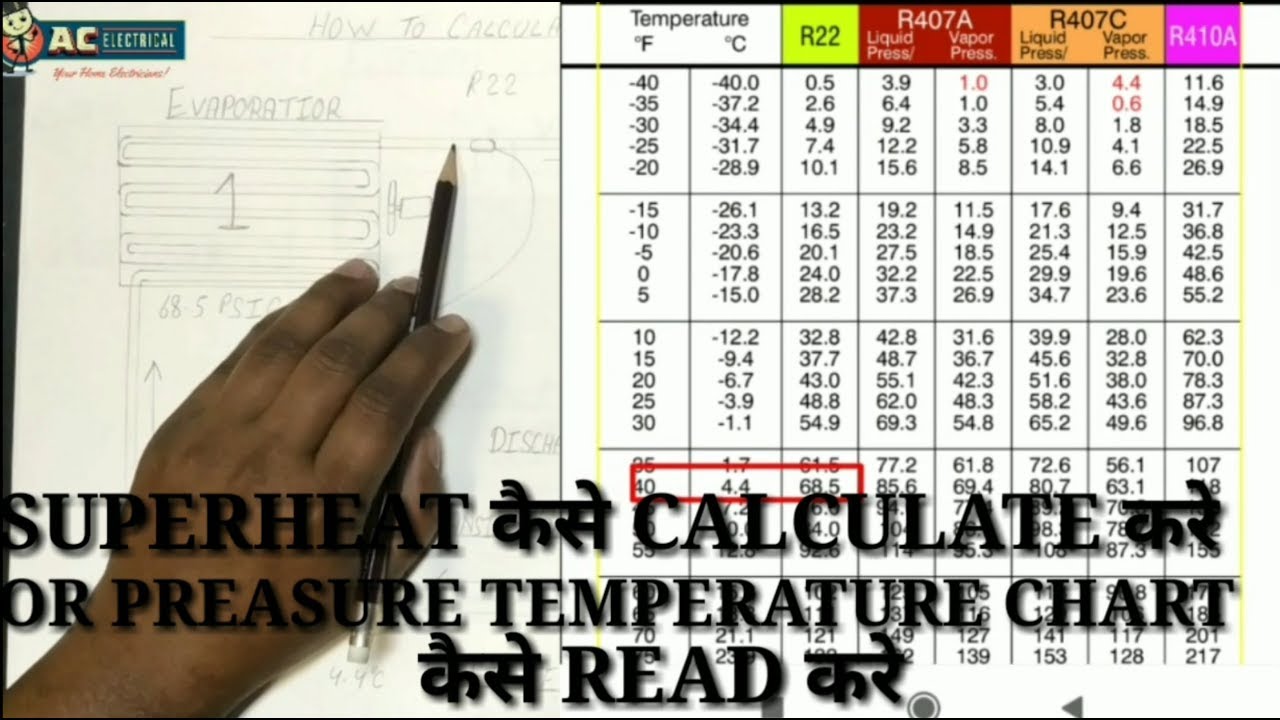 AC ELECTRICAL
Your Home Electricians!
HOW TO CALCULA
R22
EVAPORATIOR
1
68.5 PSIG
DISCHA
4.4°C
Temperature R22 R407A R407C R410A
°F °C Liquid Press/ Vapor Press. Liquid Press/ Vapor Press.
-40 -40.0 0.5 3.9 1.0 3.0 4.4 11.6
-35 -37.2 2.6 6.4 1.0 5.4 0.6 14.9
-30 -34.4 4.9 9.2 3.3 8.0 1.8 18.5
-25 -31.7 7.4 12.2 5.8 10.9 4.1 22.5
-20 -28.9 10.1 15.6 8.5 14.1 6.6 26.9
-15 -26.1 13.2 19.2 11.5 17.6 9.4 31.7
-10 -23.3 16.5 23.2 14.9 21.3 12.5 36.8
-5 -20.6 20.1 27.5 18.5 25.4 15.9 42.5
0 -17.8 24.0 32.2 22.5 29.9 19.6 48.6
5 -15.0 28.2 37.3 26.9 34.7 23.6 55.2
10 -12.2 32.8 42.8 31.6 39.9 28.0 62.3
15 -9.4 37.7 48.7 36.7 45.6 32.8 70.0
20 -6.7 43.0 55.1 42.3 51.6 38.0 78.3
25 -3.9 48.8 62.0 48.3 58.2 43.6 87.3
30 -1.1 54.9 69.3 54.8 65.2 49.6 96.8
35 1.7 61.5 77.2 61.8 72.6 56.1 107
40 4.4 68.5 85.6 69.4 80.7 63.1
55 12.8 92.6 114 95.3 108 87.3
70 21.1 121 149 127 141 117 201
139 153 128 217
SUPERHEAT कैसे CALCULATE करे
OR PREASURE TEMPERATURE CHART
कैसे READ करे